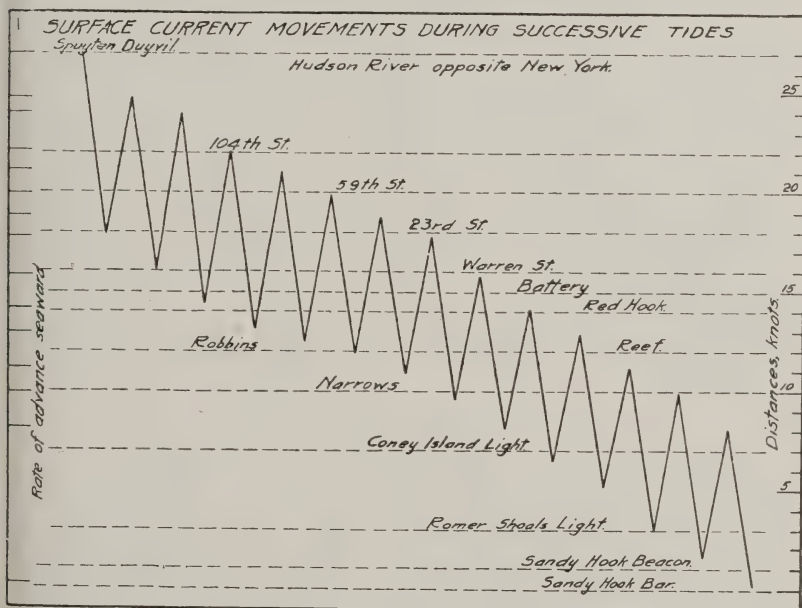 SURFACE CURRENT MOVEMENTS DURING SUCCESSIVE TIDES
Spuyten Duyvil.
Hudson River opposite New York.
25
104th St.
59th St.
20
23rd St.
Warren St.
Battery
15
Red Hook.
Robbins
Reef.
Narrows
10
Coney Island Light
5
Romer Shoals Light.
Sandy Hook Beacon.
Sandy Hook Bar.
Rate of advance seaward
Distances, knots.